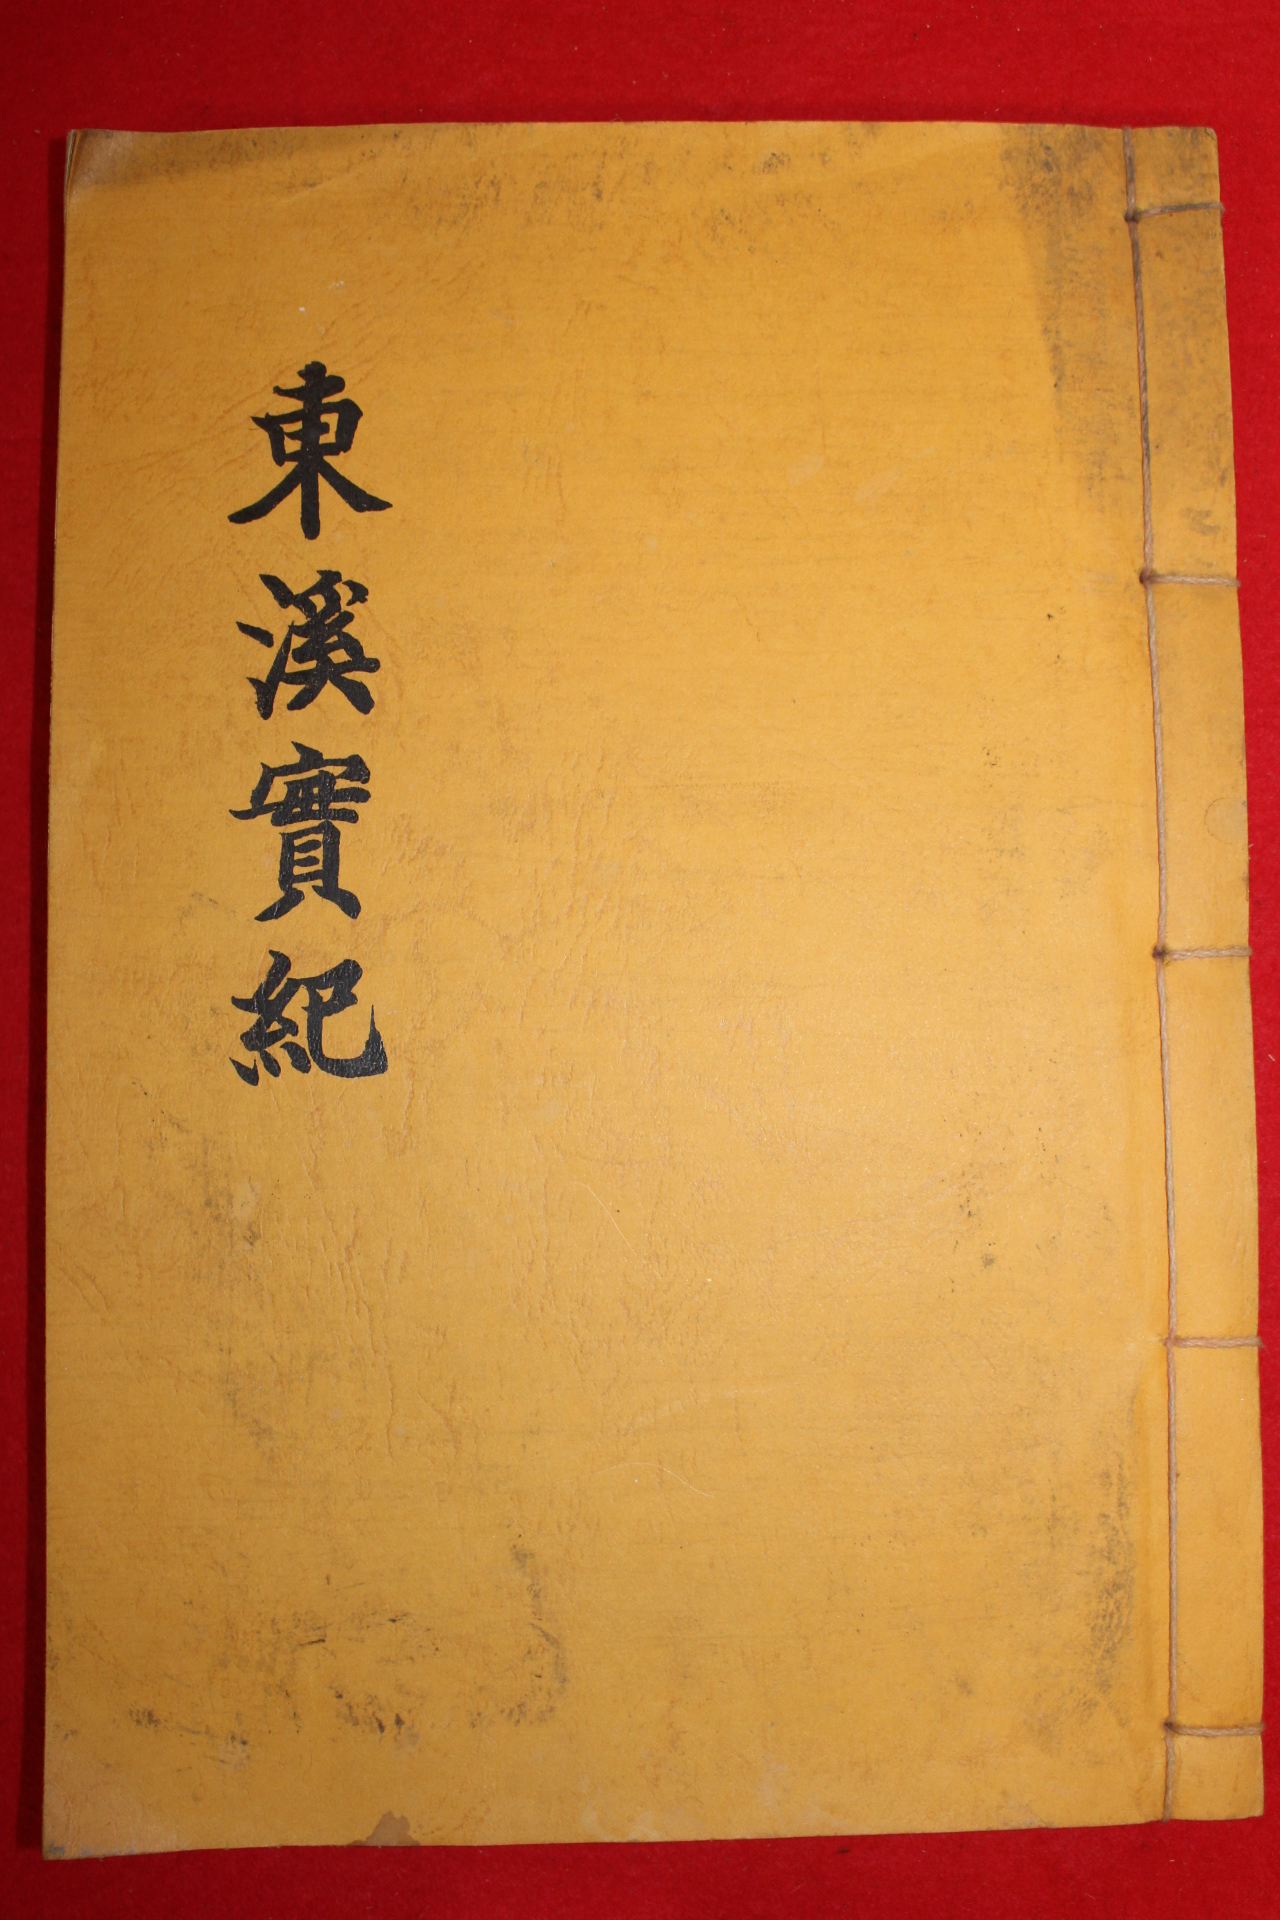 東溪實紀